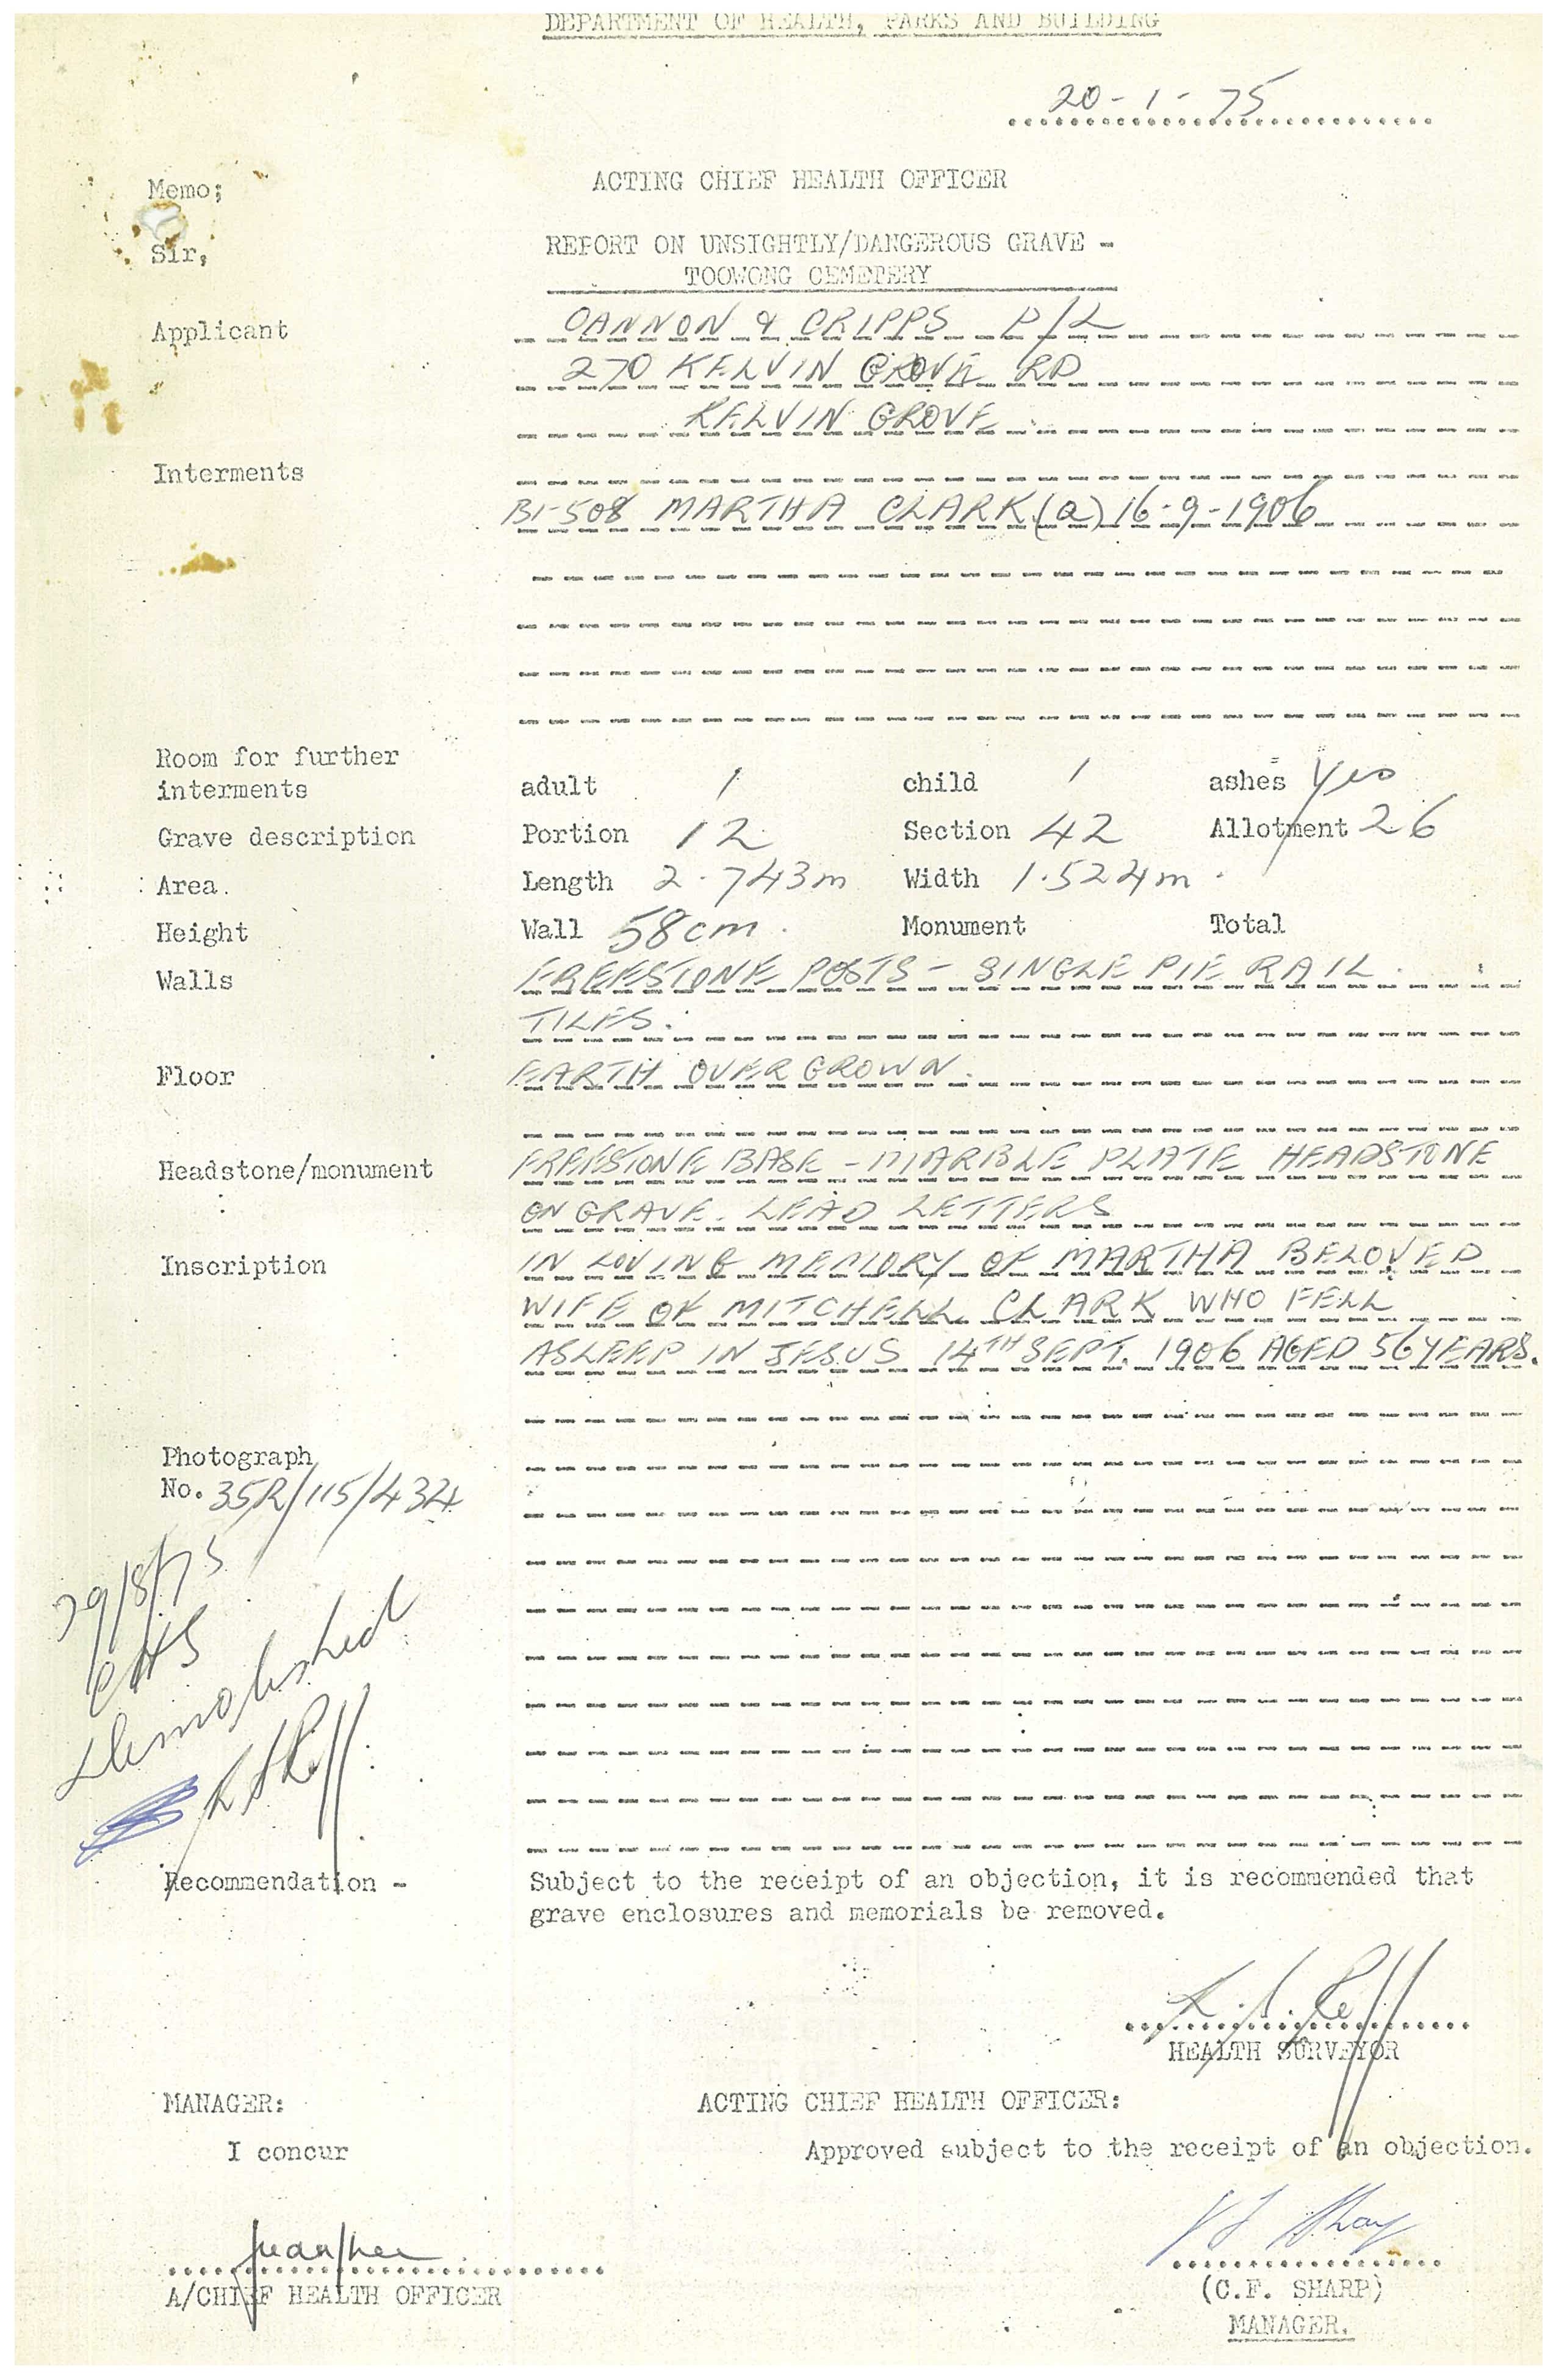 DEPARTMENT OF HEALTH, PARKS AND BUILDING
20-1-75
Memo; ACTING CHIEF HEALTH OFFICER
Sir, REPORT ON UNSIGHTLY/DANGEROUS GRAVE -
TOOWONG CEMETERY
Applicant CANNON & CRIPPS P/L
270 KELVIN GROVE RD
KELVIN GROVE
Interments
B1-508 MARTHA CLARK (a) 16-9-1906
Room for further
interments adult 1 child 1 ashes Yes
Grave description Portion 12 Section 42 Allotment 26
Area. Length 2.743m Width 1.524m.
Height Wall 58cm. Monument Total
Walls FREESTONE POSTS - SINGLE PIE RAIL.
TILES.
Floor EARTH OVERGROWN.
Headstone/monument FREESTONE BASE - MARBLE PLATE HEADSTONE
ON GRAVE. LEAD LETTERS
Inscription IN LOVING MEMORY OF MARTHA BELOVED
WIFE OF MITCHELL CLARK WHO FELL
ASLEEP IN JESUS 14TH SEPT. 1906 AGED 56 YEARS.
Photograph
No. 35R/115/434
29/8/75
CHS
Demolished
Recommendation - Subject to the receipt of an objection, it is recommended that
grave enclosures and memorials be removed.
HEALTH SURVEYOR
MANAGER: ACTING CHIEF HEALTH OFFICER:
I concur Approved subject to the receipt of an objection.
A/CHIEF HEALTH OFFICER (C.F. SHARP)
MANAGER.